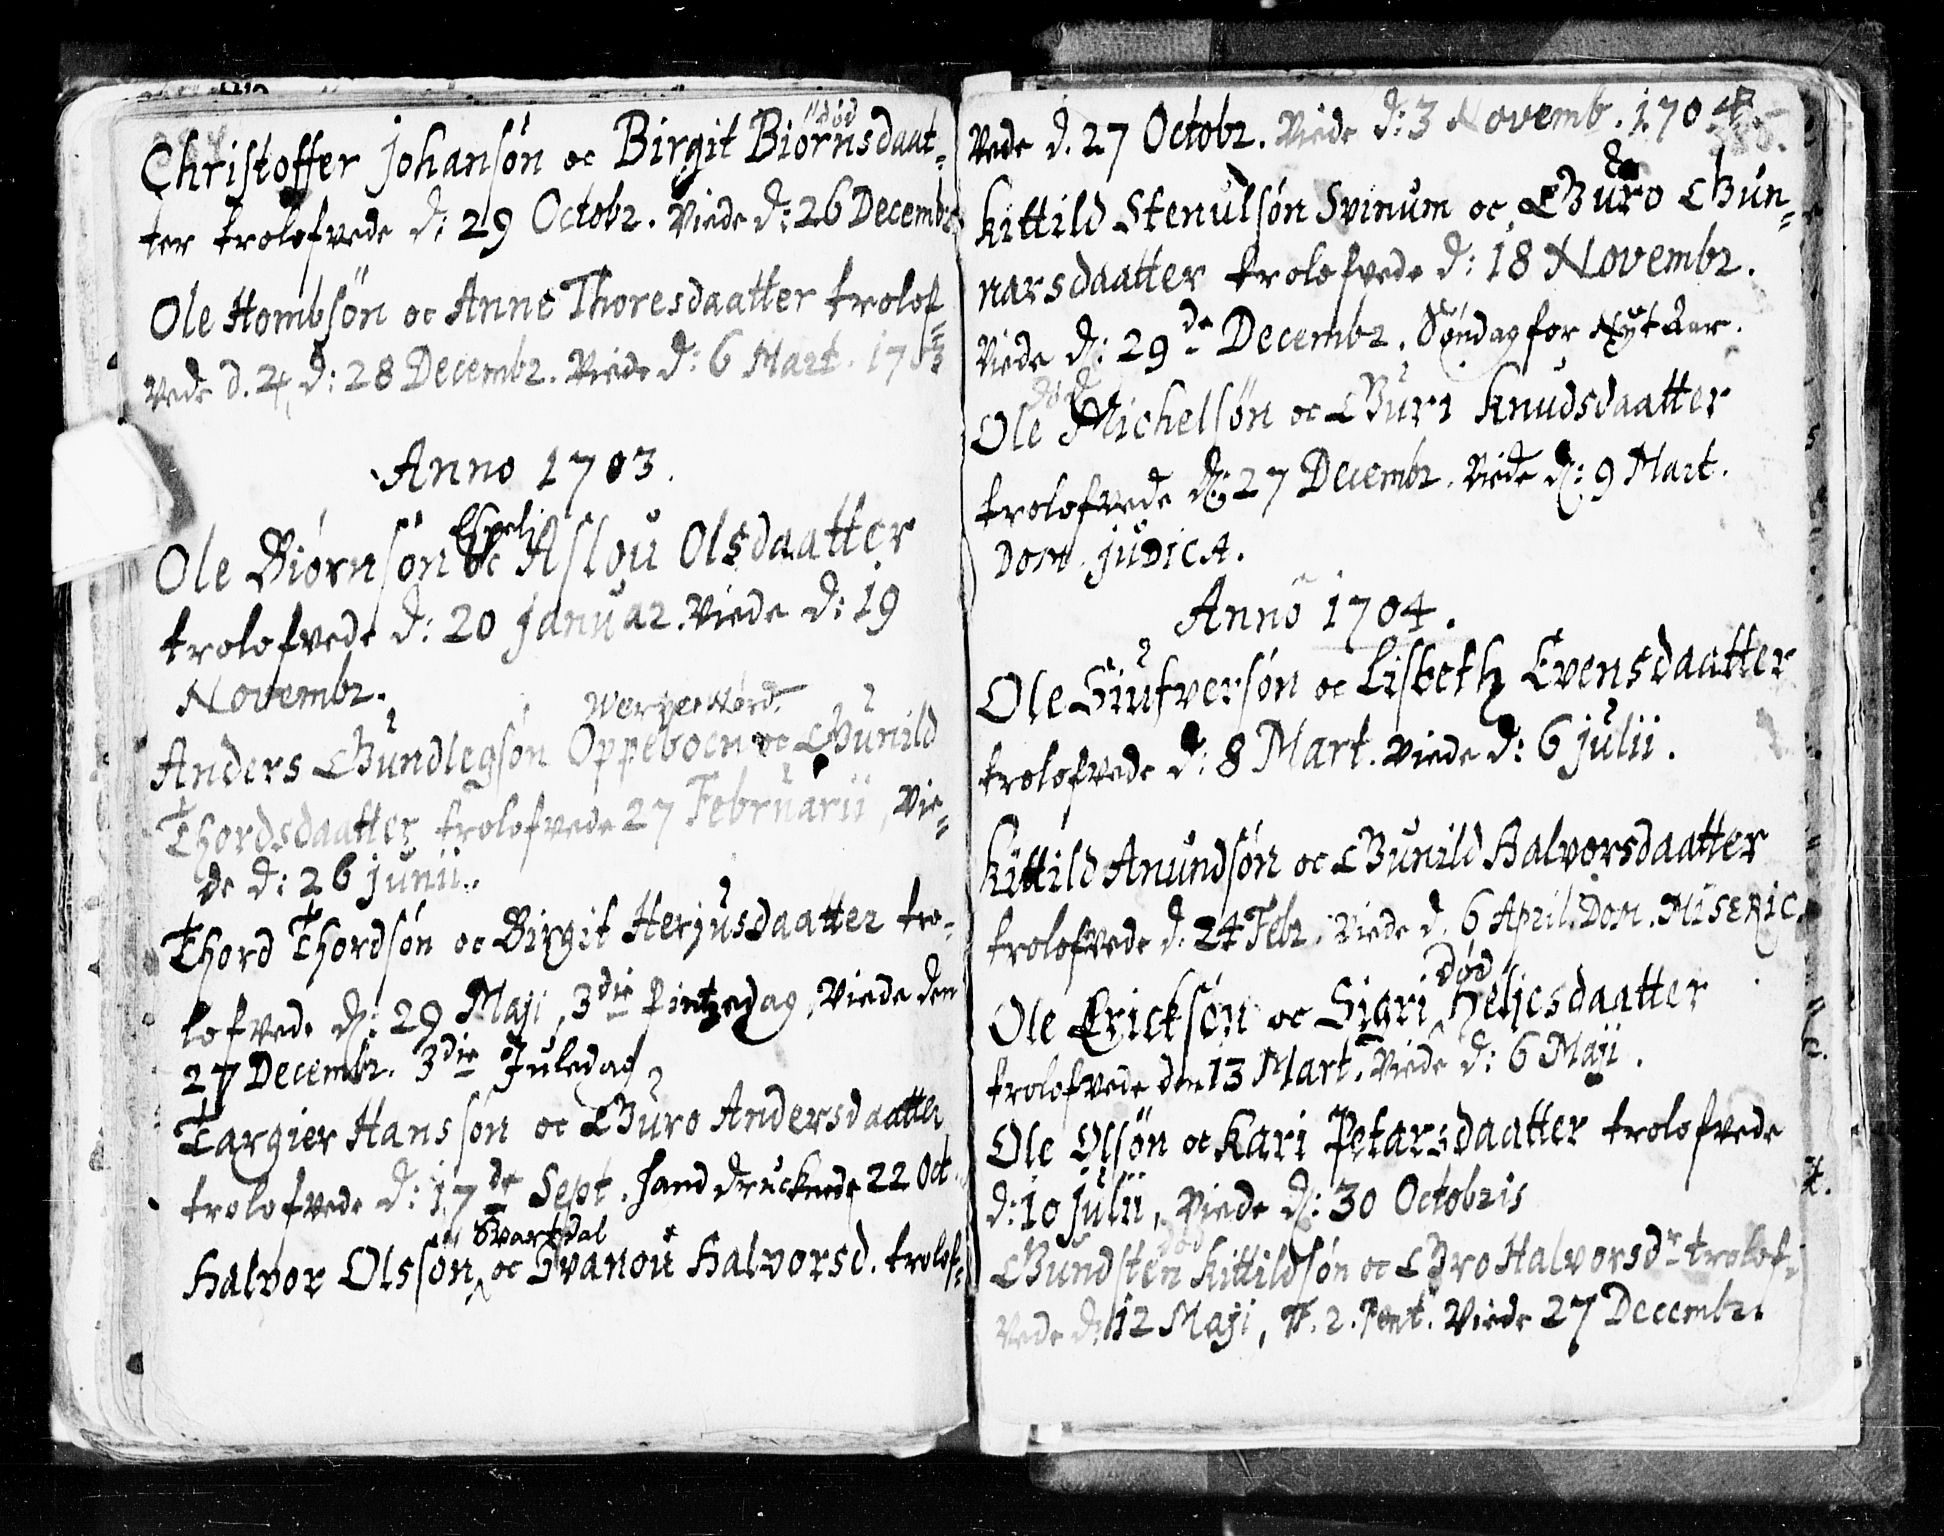 død
Christoffer Johansøn oc Birgit Biørnsdaat=
ter trolofvede d: 29 Octobr. Viede d: 26 Decembr.
Ole Hombsøn oc Anne Thoresdaatter trolof=
vede d. 4, d: 28 Decembr. Viede d: 6 Mart. 1703
Anno 1703.
Espeli
Ole Biørnsøn oc Aslou Olsdaatter
trolofvede d: 20 Januar. Viede d: 19
Novembr.
Anders Gundlegsøn Oppeboen oc Gunild
Thordsdaatter trolofvede 27 Februarii, Vie=
de d: 26 Junii.
Thord Thordsøn oc Birgit Herjusdaatter tro-
lofvede d: 29 Maji, 3die Pintzedag, Viede den
27 Decembr. 3die Juledag
Targier Hanssøn oc Guro Andersdaatter
trolofvede d: 17de Sept. hand druknede 22 Oct.
Svartdal
Halvor Olssøn, oc Svanou Halvorsd. trolof=
vede d. 27 Octobr. Viede d: 3 Novemb. 1704.
Kittild Stenulsøn Svinum oc Guro Gun=
narsdaatter trolofvede d: 18 Novembr.
Viede d: 29de Decembr. Søndag for Nyt Aar.
død
Ole Michelsøn oc Guri Knudsdaatter
trolofvede d: 27 Decembr. Viede d: 9 Mart.
Dom. Judica.
Anno 1704.
Ole Siufversøn oc Lisbeth Evensdaatter
trolofvede d: 8 Mart. Viede d: 6 Julii.
Kittild Anundsøn oc Gunild Halvorsdaatter
trolofvede d. 24 Febr. Viede d. 6 April. Dom. Miseric.
død
Ole Ericksøn oc Sigri Heljesdaatter
trolofvede den 13 Mart. Viede d: 6 Maji.
Ole Olsøn oc Kari Petarsdaatter trolofvede
d: 10 Julii, Viede d: 30 Octobris
død
Gundsten Kittildsøn oc Gro Halvorsdr trolof=
vede d: 12 Maji, F. 2. Pent. Viede 27 Decembr.